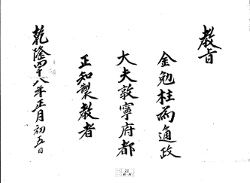 教旨
金勉柱爲通政
大夫敦寧府都
正知製教者
乾隆四十八年正月初五日